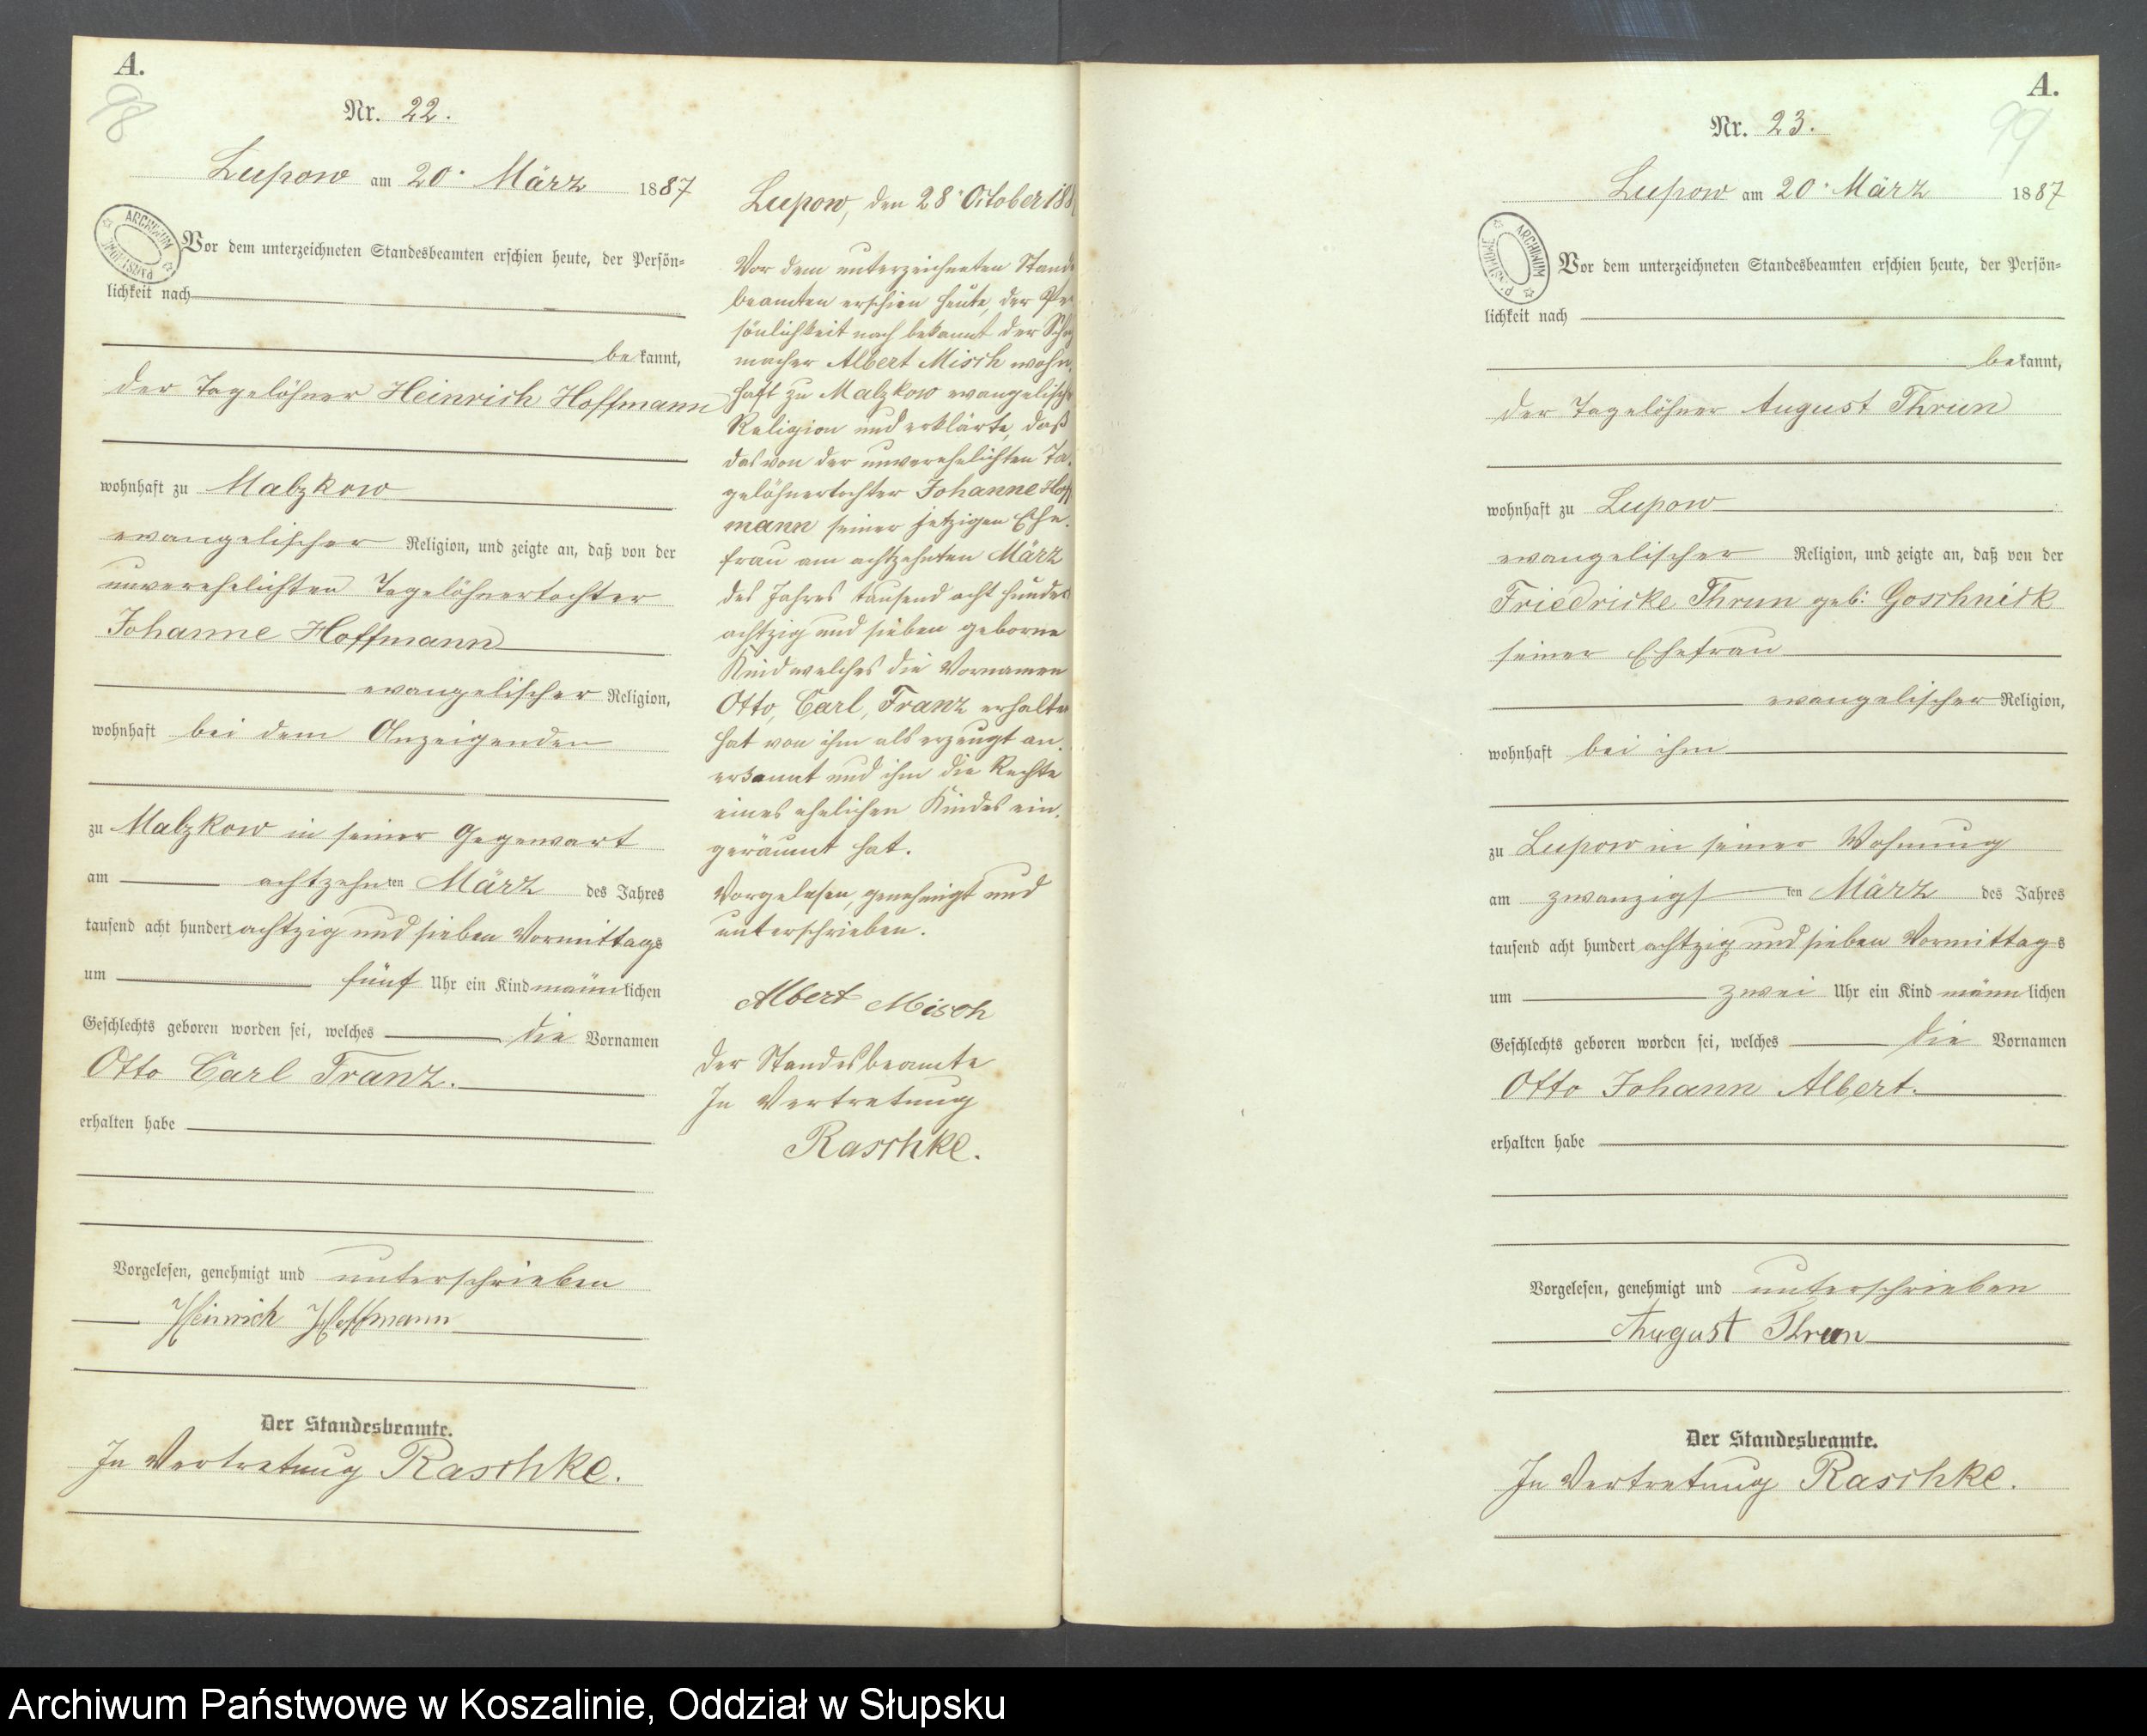 A.
98
Nr. 22.
Lupow am 20. März 1887
ARCHIWUM
Vor dem unterzeichneten Standesbeamten erschien heute, der Persön=
lichkeit nach
bekannt,
der Tagelöhner Heinrich Hoffmann
wohnhaft zu Malzkow
evangelischer Religion, und zeigte an, daß von der
unverehelichten Tagelöhnertochter
Johanne Hoffmann
evangelischer Religion,
wohnhaft bei dem Anzeigenden
zu Malzkow in seiner Gegenwart
am achtzehnten März des Jahres
tausend acht hundert achtzig und sieben Vormittags
um fünf Uhr ein Kind männlichen
Geschlechts geboren worden sei, welches die Vornamen
Otto Carl Franz.
erhalten habe
Vorgelesen, genehmigt und unterschrieben
Heinrich Hoffmann
Der Standesbeamte.
In Vertretung Raschke.
Lupow, den 28. October 188
Vor dem unterzeichneten Stande
beamten erschien heute, der Pe
sönlichkeit nach bekannt der Schuh
macher Albert Misch wohn
haft zu Malzkow evangelische
Religion und erklärte, daß
das von der unverehelichten Ta
gelöhnertochter Johanne Hoff
mann seiner jetzigen Ehe
frau am achtzehnten März
des Jahres tausend acht hundert
achtzig und sieben geborne
Kind welches die Vornamen
Otto, Carl, Franz erhalten
hat von ihm als erzeugt an
erkannt und ihm die Rechte
eines ehelichen Kindes ein
geräumt hat.
Vorgelesen, genehmigt und
unterschrieben.
Albert Misch
Der Standesbeamte
In Vertretung
Raschke.
A.
99
Nr. 23.
Lupow am 20. März 1887
ARCHIWUM
Vor dem unterzeichneten Standesbeamten erschien heute, der Persön=
lichkeit nach
bekannt,
der Tagelöhner August Thrun
wohnhaft zu Lupow
evangelischer Religion, und zeigte an, daß von der
Friedricke Thrun geb: Goschnick
seiner Ehefrau
evangelischer Religion,
wohnhaft bei ihm
zu Lupow in seiner Wohnung
am zwanzigsten März des Jahres
tausend acht hundert achtzig und sieben Vormittags
um zwei Uhr ein Kind männlichen
Geschlechts geboren worden sei, welches die Vornamen
Otto Johann Albert.
erhalten habe
Vorgelesen, genehmigt und unterschrieben
August Thrun
Der Standesbeamte.
In Vertretung Raschke.
Archiwum Państwowe w Koszalinie, Oddział w Słupsku